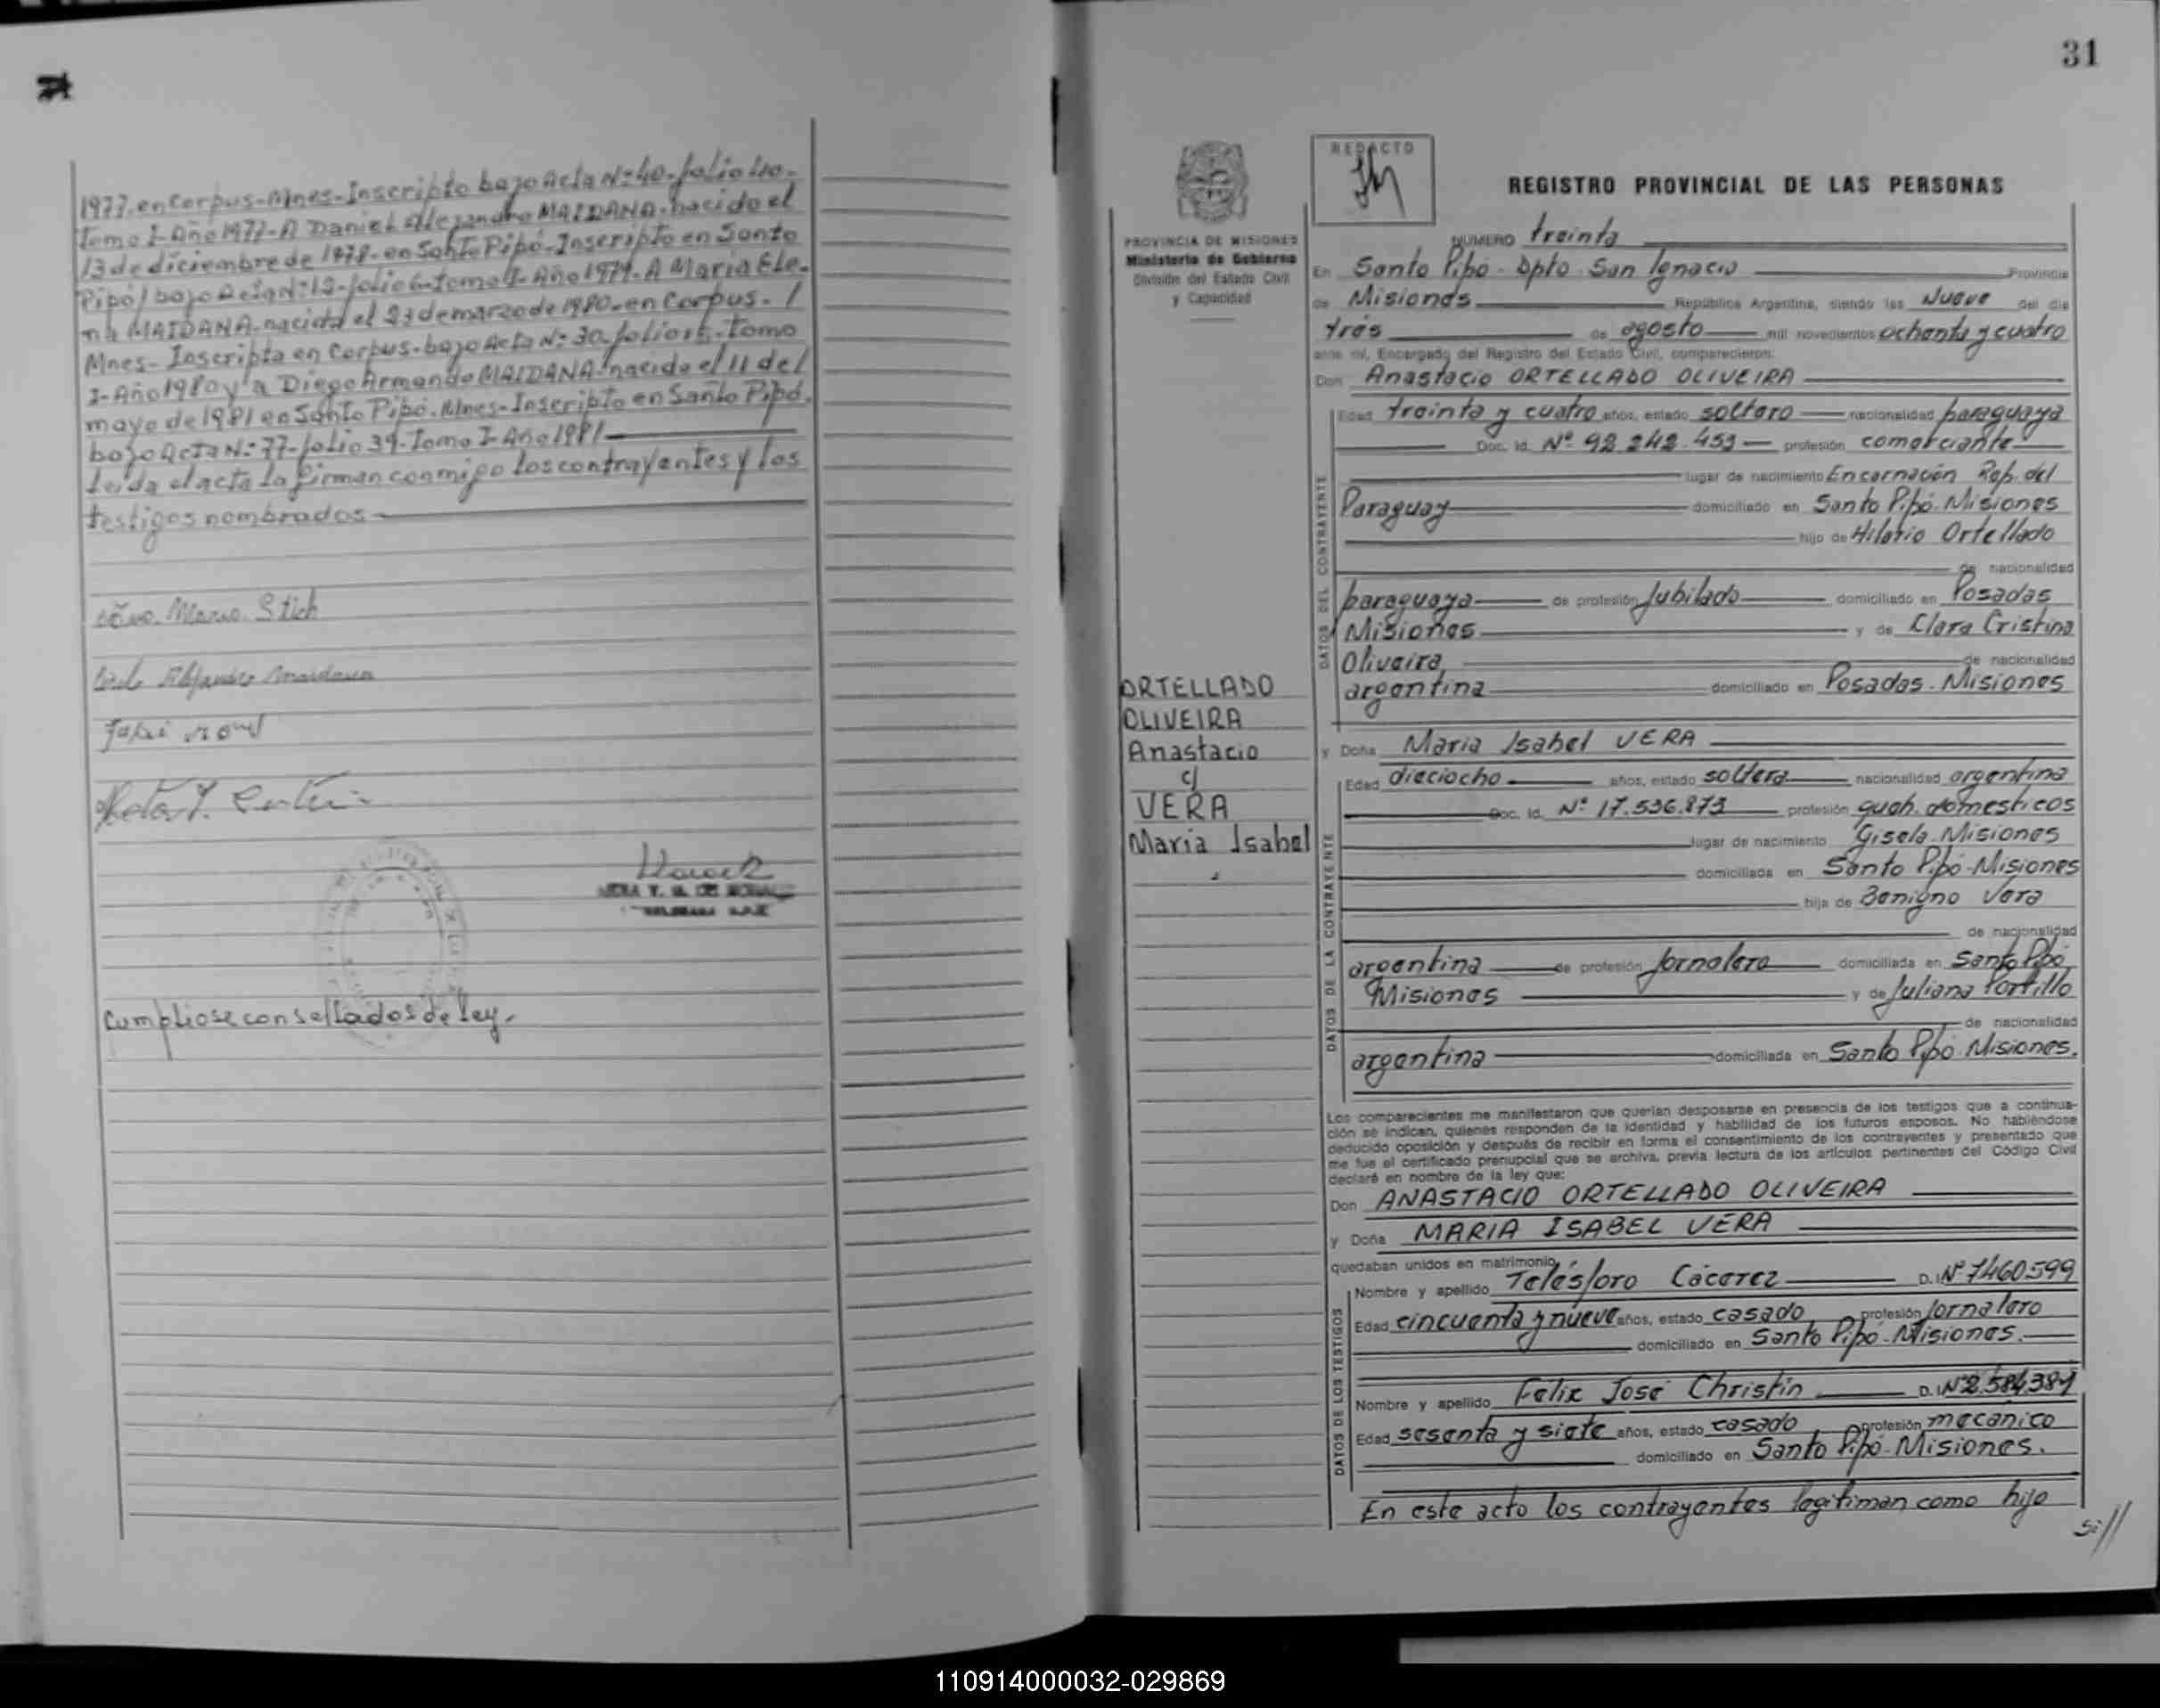 1977. en Corpus-Mnes-Inscripto bajo Acta Nº 40-folio 40-
Tomo I-Año 1977-A Daniel Alejandro MAIDANA-nacido el
13 de diciembre de 1978-en Santo Pipó-Inscripto en Santo
Pipó/ bajo Acta Nº: 12-folio 6-tomo I-Año 1979-A Maria Ele-
na MAIDANA-nacida el 23 de marzo de 1980-en Corpus-/
Mnes-Inscripta en Corpus-bajo Acta Nº 30-folio 15-Tomo
I-Año 1980 y a Diego Armando MAIDANA-nacido el 11 de/
mayo de 1981 en Santo Pipó. Mnes-Inscripto en Santo Pipó.
bajo Acta Nº: 77-folio 39-Tomo I-Año 1981
Leída el acta la firman conmigo los contrayentes y los
testigos nombrados
Mario Stich
Cumpliose con sellados de ley.
31
REDACTO
PROVINCIA DE MISIONES
Ministerio de Gobierno
División del Estado Civil
y Capacidad
REGISTRO PROVINCIAL DE LAS PERSONAS
NUMERO treinta
En Santo Pipó-Dpto. San Ignacio Provincia
de Misiones República Argentina, siendo las Nueve del día
tres de agosto mil novecientos ochenta y cuatro
ante mí, Encargado del Registro del Estado Civil, comparecieron:
Don Anastacio ORTELLADO OLIVEIRA
Edad treinta y cuatro años, estado soltero nacionalidad paraguaya
Doc. Id. Nº 92.242.453 profesión comerciante
lugar de nacimiento Encarnación Rep. del
Paraguay domiciliado en Santo Pipó. Misiones
hijo de Hilario Ortellado
de nacionalidad
paraguaya de profesión Jubilado domiciliado en Posadas
Misiones y de Clara Cristina
Oliveira de nacionalidad
argentina domiciliado en Posadas-Misiones
DATOS DEL CONTRAYENTE
ORTELLADO
OLIVEIRA
Anastacio
c/
VERA
Maria Isabel
y Doña Maria Isabel VERA
Edad dieciocho años, estado soltera nacionalidad argentina
Doc. Id. Nº 17.536.873 profesión queh. domesticos
lugar de nacimiento Gisela-Misiones
domiciliada en Santo Pipó-Misiones
hija de Benigno Vera
de nacionalidad
argentina de profesión Jornalero domiciliada en Santo Pipó
Misiones y de Juliana Portillo
de nacionalidad
argentina domiciliada en Santo Pipó-Misiones.
DATOS DE LA CONTRAYENTE
Los comparecientes me manifestaron que querían desposarse en presencia de los testigos que a continua-
ción se indican, quienes responden de la identidad y habilidad de los futuros esposos. No habiéndose
deducido oposición y después de recibir en forma el consentimiento de los contrayentes y presentado que
me fue el certificado prenupcial que se archiva, previa lectura de los artículos pertinentes del Código Civil
declaré en nombre de la ley que:
Don ANASTACIO ORTELLADO OLIVEIRA
y Doña MARIA ISABEL VERA
quedaban unidos en matrimonio
Nombre y apellido Telésforo Cácerez D.I. Nº 7460599
Edad cincuenta y nueve años, estado casado profesión Jornalero
domiciliado en Santo Pipó-Misiones.
Nombre y apellido Felix José Christin D.I. Nº 2.584.384
Edad sesenta y siete años, estado casado profesión mecanico
domiciliado en Santo Pipó-Misiones.
DATOS DE LOS TESTIGOS
En este acto los contrayentes legitiman como hijo
110914000032-029869